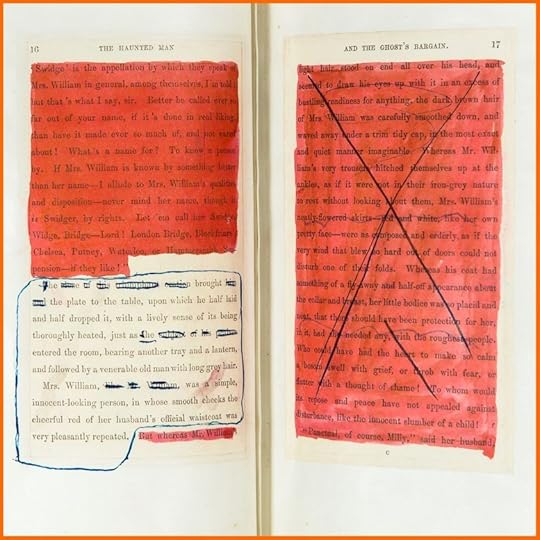 16 THE HAUNTED MAN
'Swidge' is the appellation by which they speak of
Mrs. William in general, among themselves, I'm told
but that's what I say, sir. Better be called ever so
far out of your name, if it's done in real liking,
than have it made ever so much of, and not cared
about! What's a name for? To know a person
by. If Mrs. William is known by something better
than her name—I allude to Mrs. William's qualities
and disposition—never mind her name, though it
is Swidger, by rights. Let 'em call her Swidge,
Widge, Bridge—Lord! London Bridge, Blackfriars,
Chelsea, Putney, Waterloo, or Hammersmith
pension—if they like!"
The of this oration brought
the plate to the table, upon which he half laid
and half dropped it, with a lively sense of its being
thoroughly heated, just as the of his
entered the room, bearing another tray and a lantern,
and followed by a venerable old man with long grey hair.
Mrs. William, like Mr. William, was a simple,
innocent-looking person, in whose smooth cheeks the
cheerful red of her husband's official waistcoat was
very pleasantly repeated. But whereas Mr. William's
AND THE GHOST'S BARGAIN. 17
light hair stood on end all over his head, and
seemed to draw his eyes up with it in an excess of
bustling readiness for anything, the dark brown hair
of Mrs. William was carefully smoothed down, and
waved away under a trim tidy cap, in the most exact
and quiet manner imaginable. Whereas Mr. Wil-
liam's very trousers hitched themselves up at the
ankles, as if it were not in their iron-grey nature
to rest without looking about them, Mrs. William's
neatly-flowered skirts—red and white, like her own
pretty face—were as composed and orderly, as if the
very wind that blew so hard out of doors could not
disturb one of their folds. Whereas his coat had
something of a fly-away and half-off appearance about
the collar and breast, her little bodice was so placid and
neat, that there should have been protection for her,
in it, had she needed any, with the roughest people.
Who could have had the heart to make so calm
a bosom swell with grief, or throb with fear, or
flutter with a thought of shame! To whom would
its repose and peace have not appealed against
disturbance, like the innocent slumber of a child!
"Punctual, of course, Milly," said her husband,
C